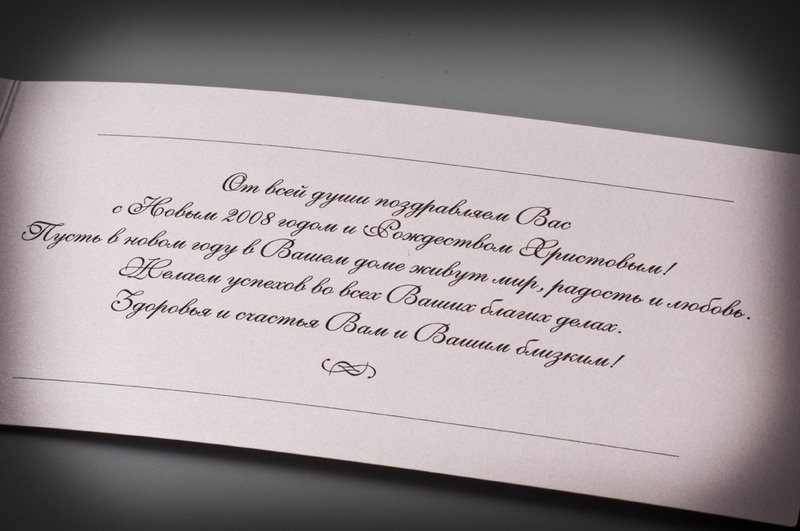 От всей души поздравляем Вас
с Новым 2008 годом и Рождеством Христовым!
Пусть в новом году в Вашем доме живут мир, радость и любовь.
Желаем успехов во всех Ваших благих делах.
Здоровья и счастья Вам и Вашим близким!